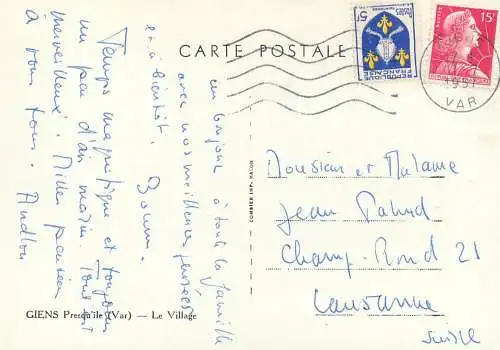 CARTE POSTALE
5F
POSTES
RÉPUBLIQUE
FRANÇAISE
15F
POSTES
VAR
un bonjour à toute la famille
avec nos meilleures pensées
et à bientôt.
Temps magnifique et toujours
un peu d'air marin. Tout est
merveilleux. Mille pensées
à tous.
CORRIER IMP. MACON
Monsieur et Madame
Jean
Champ-Rond 21
Lausanne
Suisse
GIENS Presqu'ile (Var) — Le Village